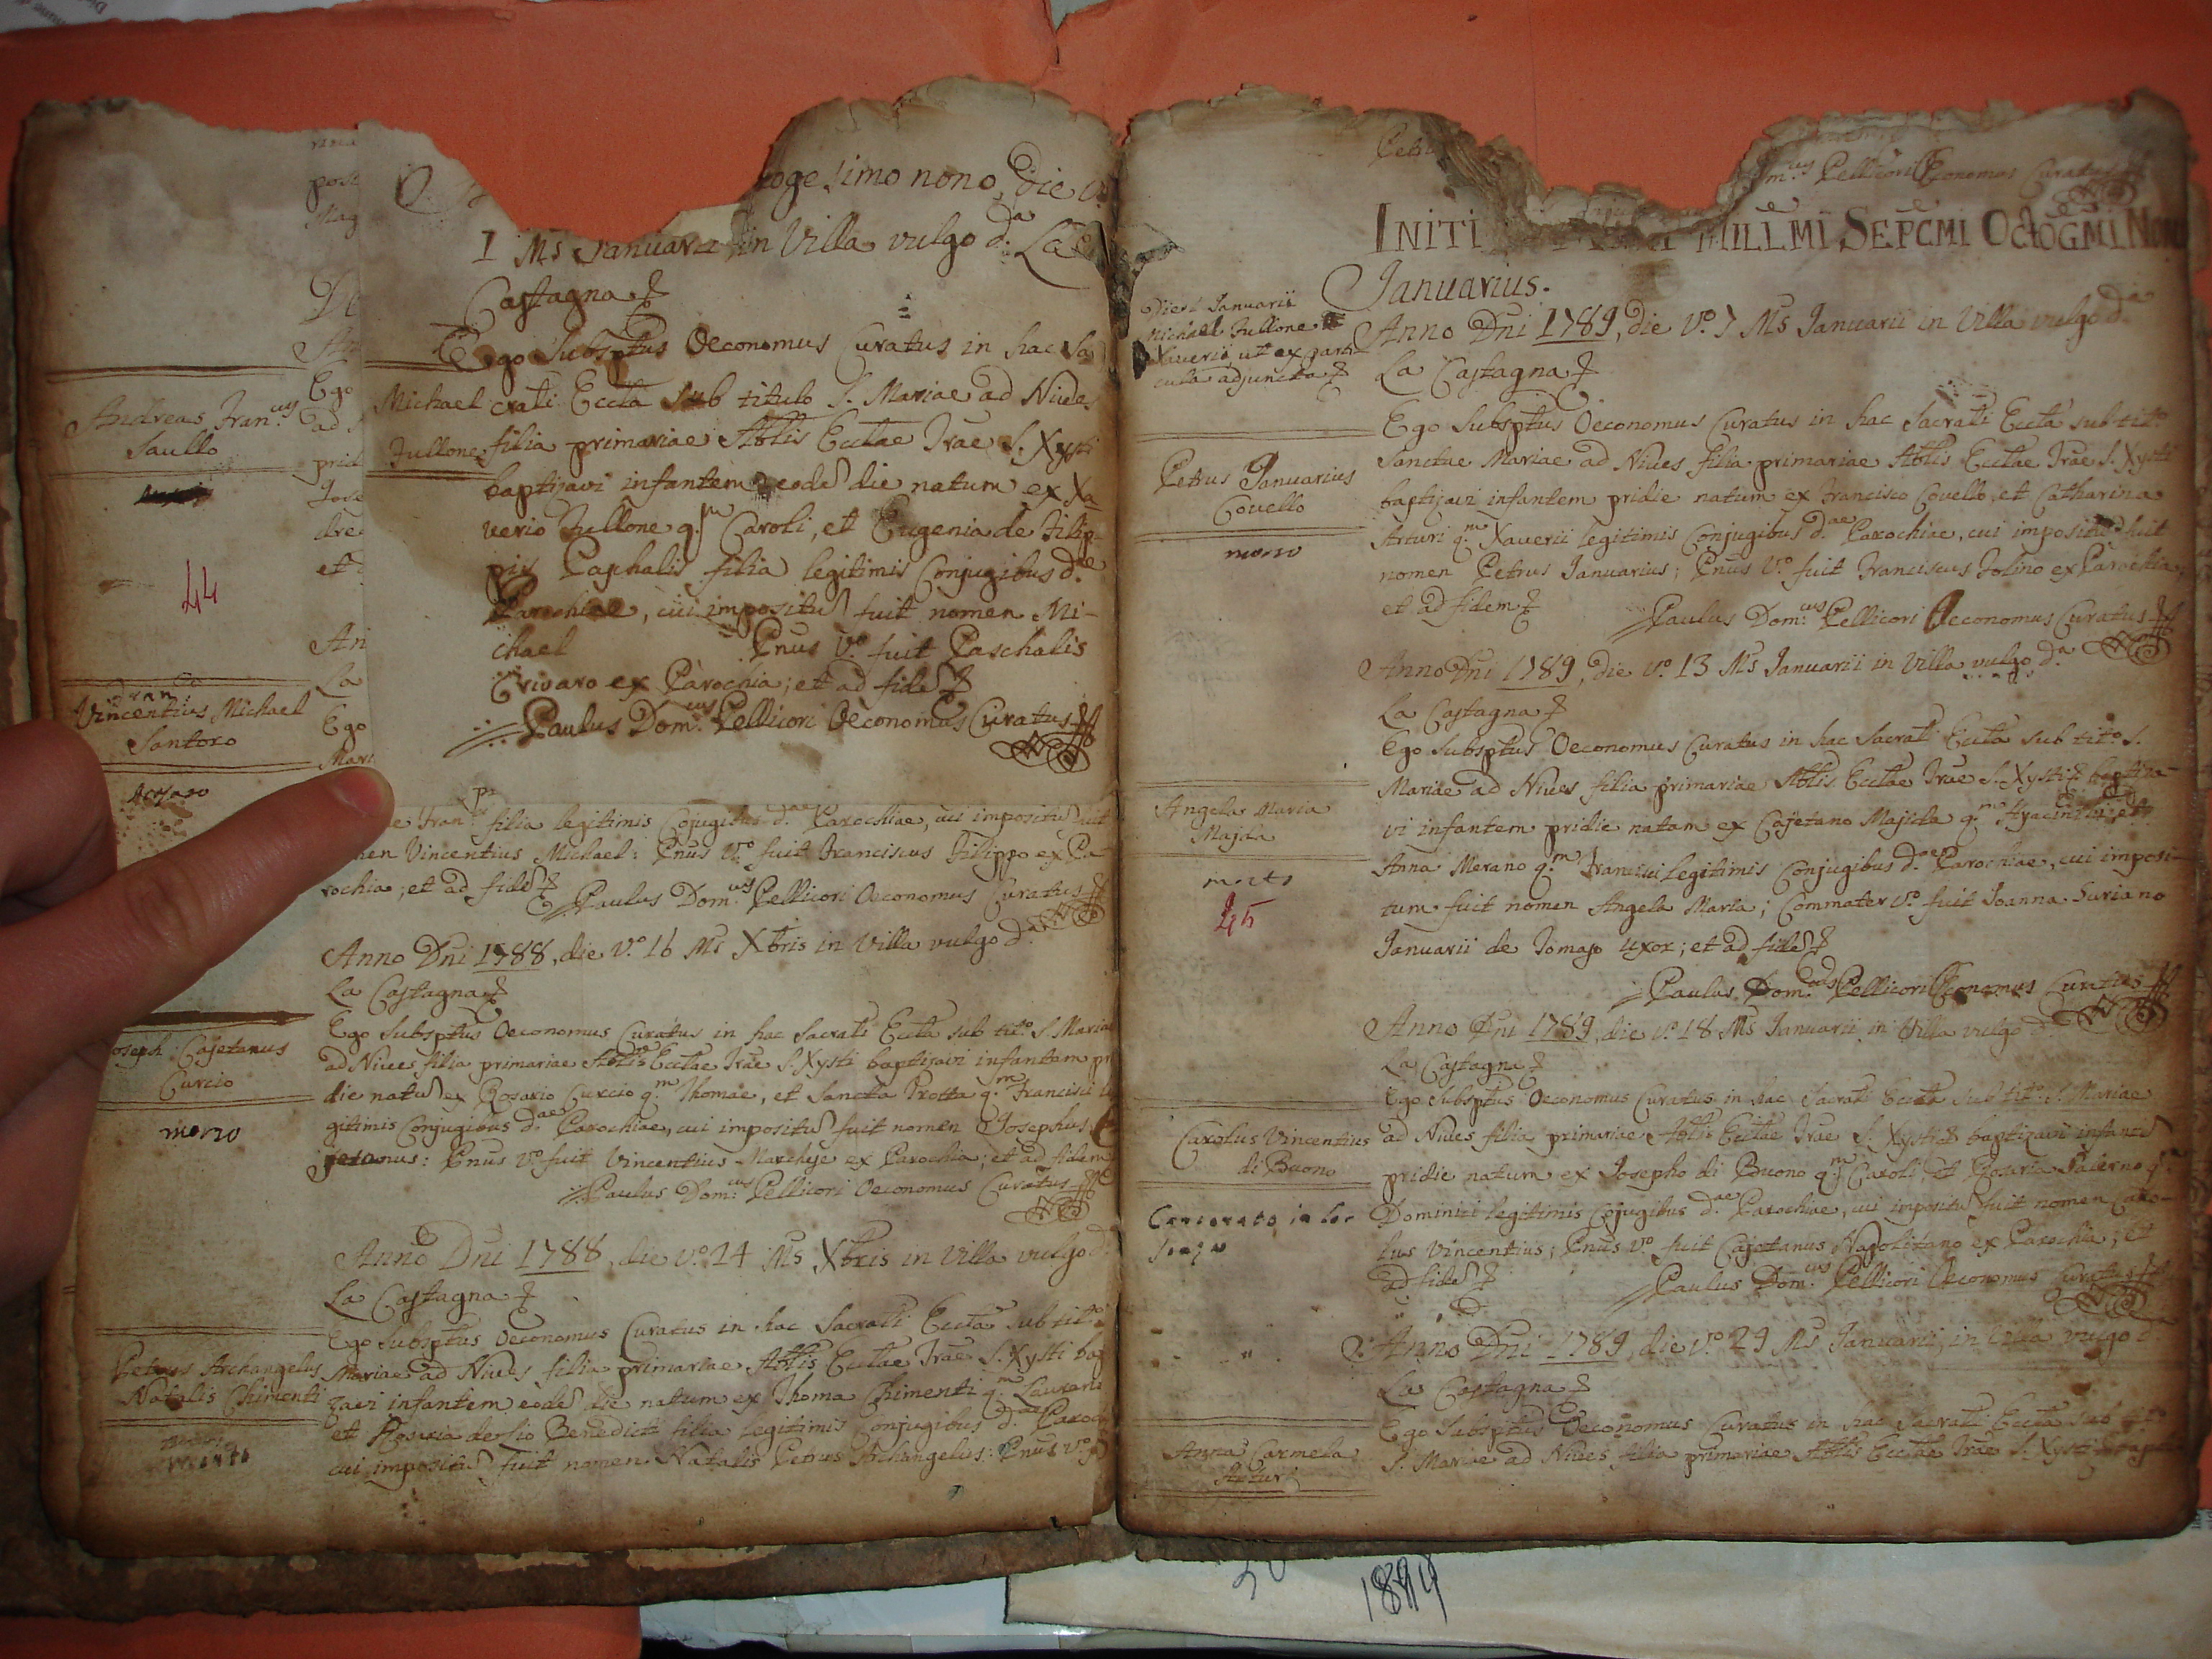 ogesimo nono, die v.
I Ms Januarii in Villa vulgo d.a La
Castagna
Ego Subsptus Oeconomus Curatus in hac Sa
Michael
Fullone
crati Eccta sub titulo S. Mariae ad Nives
filia primariae Abtis Ecctae Irae S. Xysti
baptizavi infantem eode die natum ex Xa
verio Fullone q.m Caroli, et Eugenia de Filip-
pis Paschalis filia legitimis Conjugibus d.ae
Parochiae, cui impositu fuit nomen Mi-
chael Pnus V.o fuit Paschalis
Crivaro ex Parochia; et ad fide
Paulus Dom.cus Pellicori Oeconomus Curatus
Andreas Fran.cus
Saullo
44
Vincentius Michael
Santoro
Ego
Fran. filia legitimis Cojugibus d.ae Parochiae, cui impositu fuit
men Vincentius Michael: Pnus V.o fuit Franciscus Filippo ex Pa-
rochia; et ad fide
Paulus Dom.cus Pellicori Oeconomus Curatus
Anno Dni 1788, die V.o 16 Ms Xbris in Villa vulgo d.a
La Castagna
oseph Cajetanus
Curcio
morzo
Ego Subsptus Oeconomus Curatus in hac Sacrati Eccta sub tit.o S. Mariae
ad Nives filia primariae Abtis Ecctae Irae S. Xysti baptizavi infantem pri
die natu ex Rosario Curcio q.m Thomae, et Sancta Trotta q.m Francisci le
gitimis Conjugibus d.ae Parochiae, cui impositu fuit nomen Josephus
jetanus: Pnus V.o fuit Vincentius Marchese ex Parochia; et ad fidem
Paulus Dom.cus Pellicori Oeconomus Curatus
Anno Dni 1788, die V.o 24 Ms Xbris in Villa vulgo d.
La Castagna
Petrus Archangelus
Natalis Chimenti
Ego Subsptus Oeconomus Curatus in hac Sacrati Eccta sub tit.o
Mariae ad Nives filia primariae Abtis Ecctae Irae S. Xysti bap
zavi infantem eode die natum ex Thoma Chimenti q.m Laurent
et Rosaria de Benedicti filia legitimis Conjugibus d.ae Paroch
cui impositu fuit nomen Natalis Petrus Archangelus: Pnus V.o
Petru
m.cus Pellicori Oeconomus Curatus
INITI MILLMI SEPCMI OCTOGMI NONI
Januarius.
Dier 1 Januarii
Michael Fullone
Xaverii ut ex parti
cula adjuncta
Anno Dni 1789, die V.o 7 Ms Januarii in Villa vulgo d.a
La Castagna
Petrus Januarius
Covello
morzo
Ego Subsptus Oeconomus Curatus in hac Sacrati Eccta sub tit.o
Sanctae Mariae ad Nives filia primariae Abtis Ecctae Irae S. Xysti
baptizavi infantem pridie natum ex Francisco Covello, et Catharina
Arturi q.m Xaverii legitimis Conjugibus d.ae Parochiae, cui impositu fuit
nomen Petrus Januarius; Pnus V.o fuit Franciscus Folino ex Parochia;
et ad fidem
Paulus Dom.cus Pellicori Oeconomus Curatus
Anno Dni 1789, die V.o 13 Ms Januarii in Villa vulgo d.a
La Castagna
Angela Maria
Majda
morta
45
Ego Subsptus Oeconomus Curatus in hac Sacrati Eccta sub tit.o S.
Mariae ad Nives filia primariae Abtis Ecctae Irae S. Xysti baptiza-
vi infantem pridie natam ex Cajetano Majda q.m Hyacinthi, et
Anna Merano q.m Francisci legitimis Conjugibus d.ae Parochiae, cui imposi-
tum fuit nomen Angela Maria; Commater V.o fuit Joanna Suriano
Januarii de Tomaso uxor; et ad fide
Paulus Dom.cus Pellicori Oeconomus Curatus
Anno Dni 1789, die V.o 18 Ms Januarii in Villa vulgo d.a
La Castagna
Carolus Vincentius
di Buono
Ego Subsptus Oeconomus Curatus in hac Sacrati Eccta sub tit.o S. Mariae
ad Nives filia primariae Abtis Ecctae Irae S. Xysti baptizavi infante
pridie natum ex Josepho di Buono q.m Caroli, et Rosaria Palerno q.m
Dominici legitimis Cojugibus d.ae Parochiae, cui impositu fuit nomen Caro-
lus Vincentius; Pnus V.o fuit Cajetanus Napolitano ex Parochia; et
ad fide
Paulus Dom.cus Pellicori Oeconomus Curatus
Anno Dni 1789, die V.o 29 Ms Januarii, in Villa vulgo d.a
La Castagna
Anna Carmela
Arturi
Ego Subsptus Oeconomus Curatus in hac Sacrati Eccta sub tit.o
S. Mariae ad Nives filia primariae Abtis Ecctae Irae S. Xysti